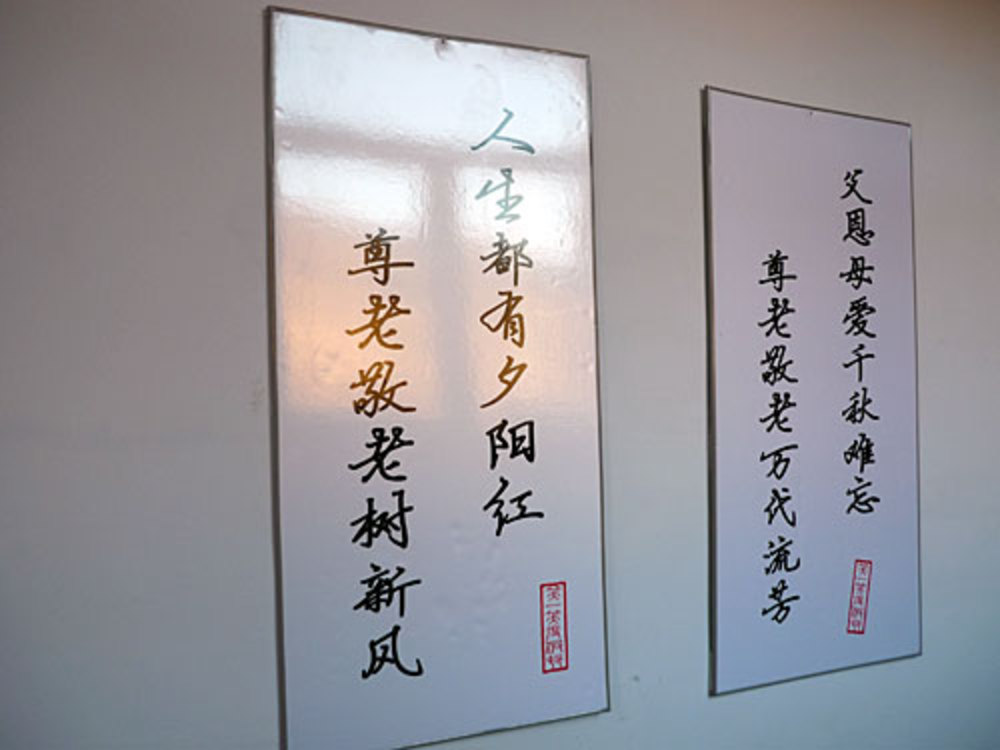 人生都有夕阳红
尊老敬老树新风
父恩母爱千秋难忘
尊老敬老万代流芳